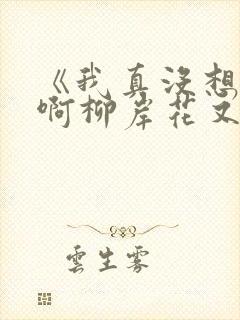 《我真没想
啊柳岸花又
雲生雾